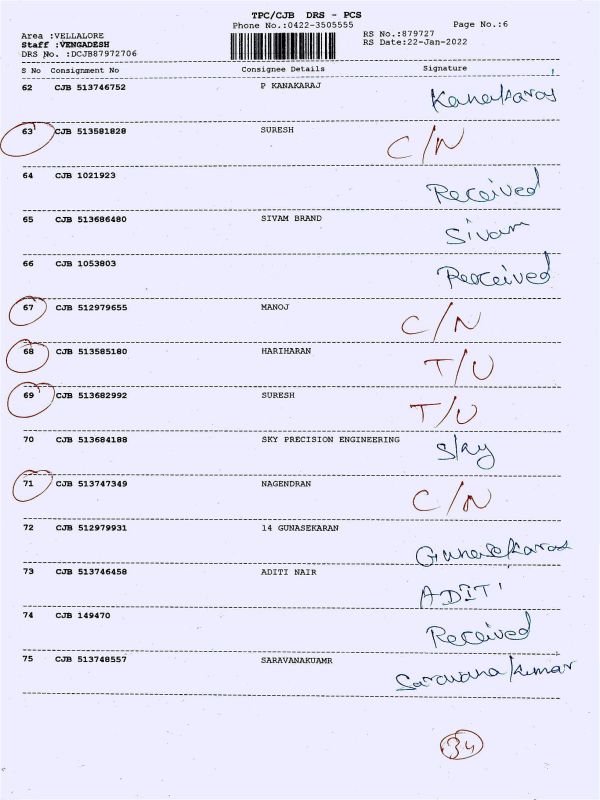 TPC/CJB DRS - PCS
Phone No.:0422-3505555 Page No.:6
Area :VELLALORE RS No.:879727
Staff :VENGADESH RS Date:22-Jan-2022
DRS No. :DCJB87972706
S No Consignment No Consignee Details Signature
62 CJB 513746752 P KANAKARAJ Kanakaraj
63 CJB 513581828 SURESH C/N
64 CJB 1021923 Received
65 CJB 513686480 SIVAM BRAND Sivam
66 CJB 1053803 Received
67 CJB 512979655 MANOJ C/N
68 CJB 513585180 HARIHARAN T/U
69 CJB 513682992 SURESH T/U
70 CJB 513684188 SKY PRECISION ENGINEERING Sky
71 CJB 513747349 NAGENDRAN C/N
72 CJB 512979931 14 GUNASEKARAN Gunasekaran
73 CJB 513746458 ADITI NAIR ADITI
74 CJB 149470 Received
75 CJB 513748557 SARAVANAKUAMR Saravanakumar
34